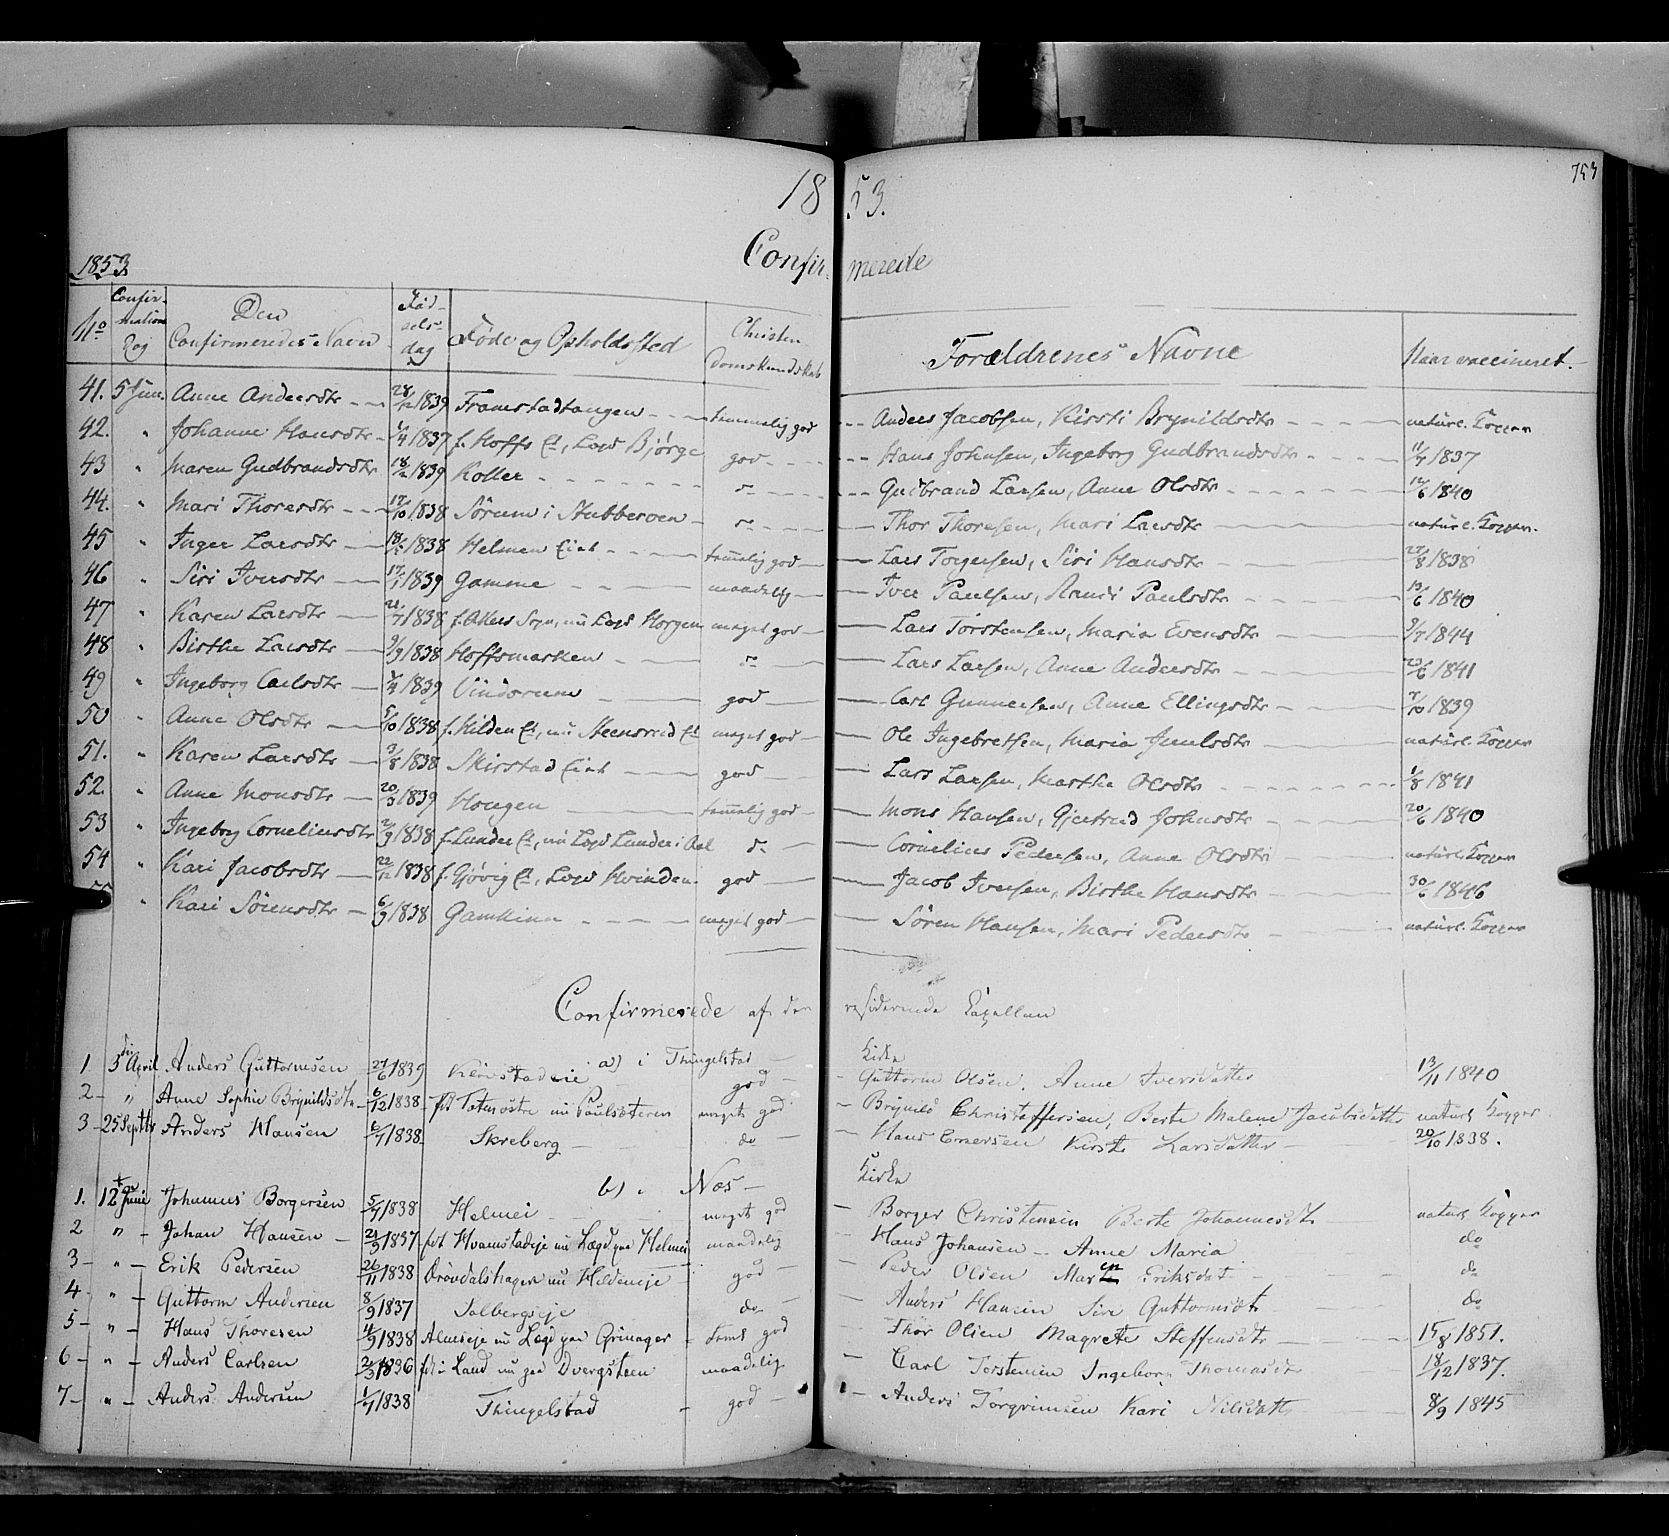 753
18 53.
1853
Confir- merede
No Confirmations Dag Den Confirmeredes Navn Fødselsdag Føde og Opholdssted Christendomskundskab Forældrenes Navne Naar vaccineret.
41. 5 Juni Anne Andersdtr 28/12 1839 Framstadtangen temmelig god Anders Jacobsen, Kirsti Brynildsdtr naturl. Kopper
42. " Johanne Hansdtr 1/4 1837 f. Hoffs Et, Lægd Bjørge god Hans Johnsen, Ingeborg Gudbrandsdtr 11/7 1837
43 " Maren Gudbrandsdtr 18/2 1839 Koller do Gudbrand Larsen, Anne Olsdtr 12/6 1840
44. " Mari Thoresdtr 17/10 1838 Sørum i Stubberoen do Thor Thoresen, Mari Larsdtr naturl. Kopper.
45 " Inger Larsdtr 1838 Helmen Eiet temmelig god Lars Torgersen, Siri Hansdtr 27/8 1838
46 " Siri Iversdtr 17/1 1839 Gamme maadelig Iver Paulsen, Randi Paulsdtr 13/6 1840
47 " Karen Larsdtr 21/7 1838 f. Akers Sogn, nu Lægd Horgen meget god Lars Torstensen, Maria Evensdtr 9/7 1844
48 " Birthe Larsdtr 9/9 1838 Hoffsmarken do Lars Larsen, Anne Andersdtr 23/6 1841
49 " Ingeborg Carlsdtr 1/4 1839 Vindorum god Carl Gunnersen, Anne Ellingsdtr 7/10 1839
50 " Anne Olsdtr 5/10 1838 f. Kilden Et, nu Steensrud Et meget god Ole Ingebretsen, Maria Juulsdtr naturl. Kopper
51. " Karen Larsdtr 3/8 1838 Skirstad Eiet god Lars Larsen, Marthe Olsdtr 1/8 1841
52. " Anne Monsdtr 20/3 1839 Hougen temmelig god Mons Hansen, Gjertrud Johnsdtr 20/6 1840
53 " Ingeborg Corneliusdtr 2/9 1838 f. Lunder Et, nu Lægd Lunder i Aal do Cornelius Pedersen, Anne Olsdtr naturl. Kopper
54 " Kari Jacobsdtr 22/12 1838 f. Gjøvig Et, Lægd Hvinden god Jacob Iversen, Birthe Hansdtr 30/6 1846
55 " Kari Sørensdtr 6/9 1838 Gamkinn meget god Søren Hansen, Mari Pedersdtr naturl. Kopper
Confirmerede af den residerende Capellan
a) i Thingelstad Kirke
1 3die April Anders Guttormsen 27/6 1839 Klæstadeie god Guttorm Olsen. Anne Iversdatter 13/11 1840
2 " Anne Sophie Brynildsdtr 6/12 1838 fdt Totenøstre nu Paulsæteren meget god Brynild Christoffersen, Berte Malene Jacobsdatter naturl Kopper
3 25 Septbr Anders Hansen 6/7 1838 Skreberg do Hans Enersen Kirste Larsdatter 20/10 1838.
b) " Næs Kirke
1. 12te Juni Johannes Borgersen 5/7 1838 Helmei meget god Borger Christensen Berte Johannesdtr naturl Kopper
2 " Johan Hansen 21/9 1837 fdt Hvamstadeje nu Lægd paa Helmei maadelig Hans Johansen Anne Maria do
3 " Erik Pedersen 26/11 1838 Drøvdalshagen nu Hildeneje god Peder Olsen Maren Eriksdat do
4 " Guttorm Andersen 8/9 1837 Solbergseje do Anders Hansen Sire Guttormsdtr do
5 " Hans Thoresen 4/9 1838 Almseje nu Lægd paa Grinager Tems god Thor Olsen Magrete Steffensdtr 15/8 1851.
6 " Anders Carlsen 2/3 1836 fdt i Land nu paa Dvergsteen maadelig Carl Torstensen Ingeborg Thomasdt 18/12 1837.
7 " Anders Andersen 1/7 1838 Thingelstad god Anders Torgrimsen Kari Nilsdatter 8/9 1845